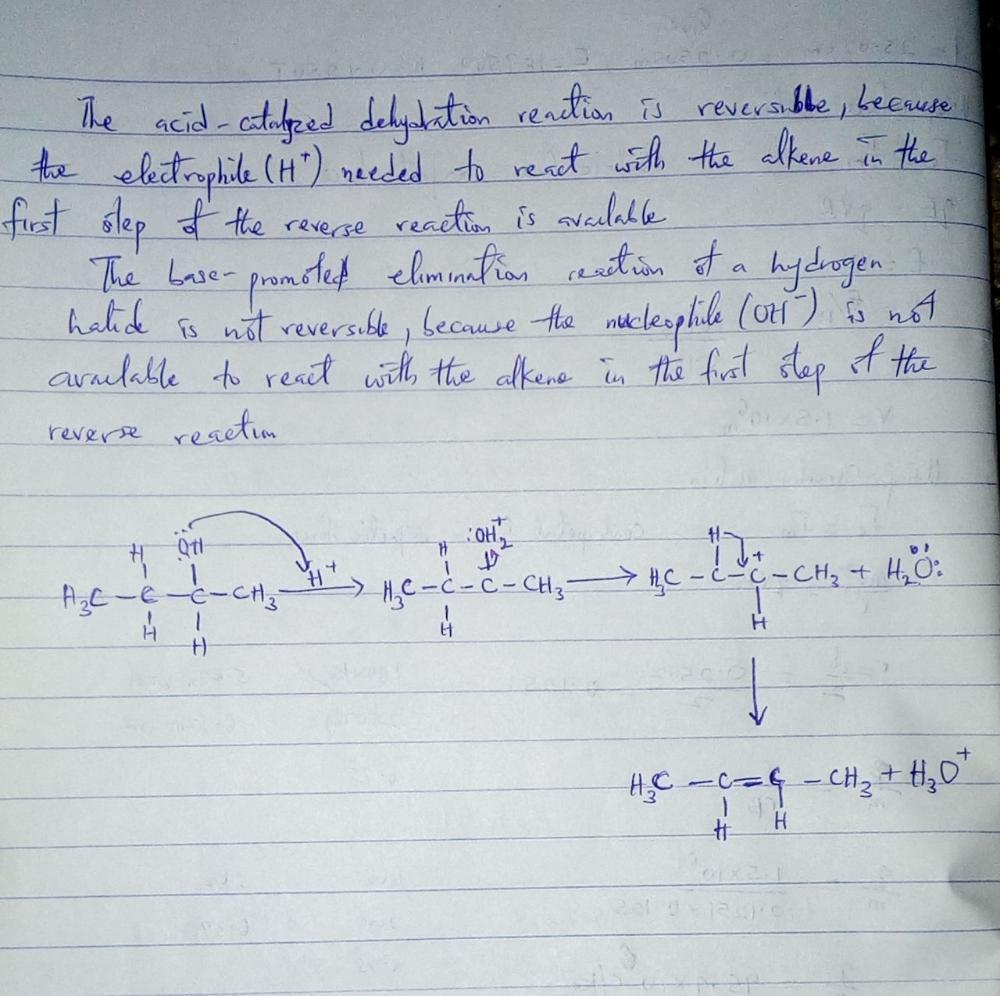 The acid-catalyzed dehydration reaction is reversible, because
the electrophile (H⁺) needed to react with the alkene in the
first step of the reverse reaction is available
The base-promoted elimination reaction of a hydrogen
halide is not reversible, because the nucleophile (OH⁻) is not
available to react with the alkene in the first step of the
reverse reaction
H :ÖH H :OH₂⁺ H
H₃C – C – C – CH₃ H⁺ → H₃C – C – C – CH₃ → H₃C – C – C⁺ – CH₃ + H₂Ö:
H H H H
↓
H₃C – C = C – CH₃ + H₃O⁺
H H